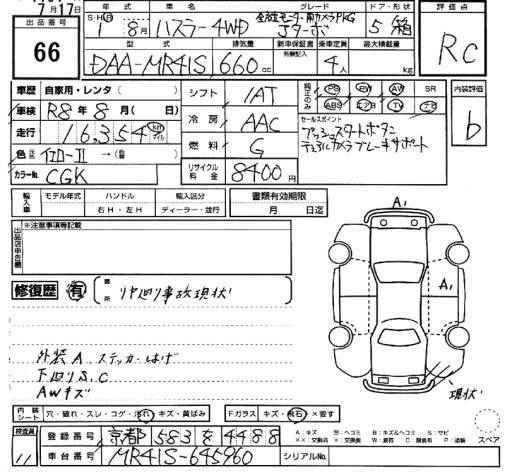 7月17日
出品番号
66
年式 車名 グレード ドア・形状 評価点
S・H・R 1 8月 ハスラー4WD 全方位モニター用カメラPKG
Jターボ 5 箱
型式 排気量 新車保証書 乗車定員 最大積載量
有無記入
DAA-MR41S 660 cc 4人 kg
RC
車歴 自家用・レンタ( )
車検 R8年8月( 日)
走行 16,354 km マイル
色 元色 イエローⅡ →(替 )
カラーNo. CGK
シフト IAT
冷房 AAC
燃料 G
リサイクル料金 8400円
純正のみ PS PW AW SR
ABS エアB TV ナビ
セールスポイント
プッシュスタートボタン
デュアルカメラブレーキサポート
内装評価
b
輸入車 モデル年式 ハンドル 輸入区分
右H・左H ディーラー・並行
書類有効期限
月 日迄
出品店申告欄
※注意事項等記載
修復歴 有 箇所 リヤ廻り事故現状
外装A ステッカーはげ
下廻りS、C
AWキズ
A1
A1
現状
内装シート 穴・破れ・スレ・コゲ・汚れ・キズ・黄ばみ
Fガラス キズ・飛石・×要す
A：キズ U：ヘコミ B：キズ&ヘコミ S：サビ
××：交換済 ×：要交換 W：波有 C：腐食有 P：塗装
スペア
検査員 11
登録番号 京都 583 を 4488
車台番号 MR41S-645960 シリアルNo.